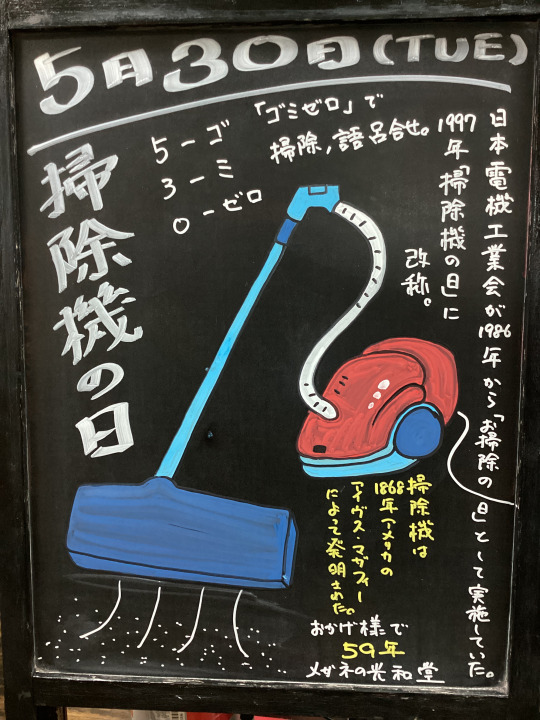 5月30日(TUE)
掃除機の日
5-ゴ
3-ミ
0-ゼロ
「ゴミゼロ」で
掃除,語呂合せ。
日本電機工業会が1986年から「お掃除の日」として実施していた。
1997年「掃除機の日」に
改称。
掃除機は
1868年アメリカの
アイヴス・マガフィー
によって発明された。
おかげ様で
59年
メガネの光和堂